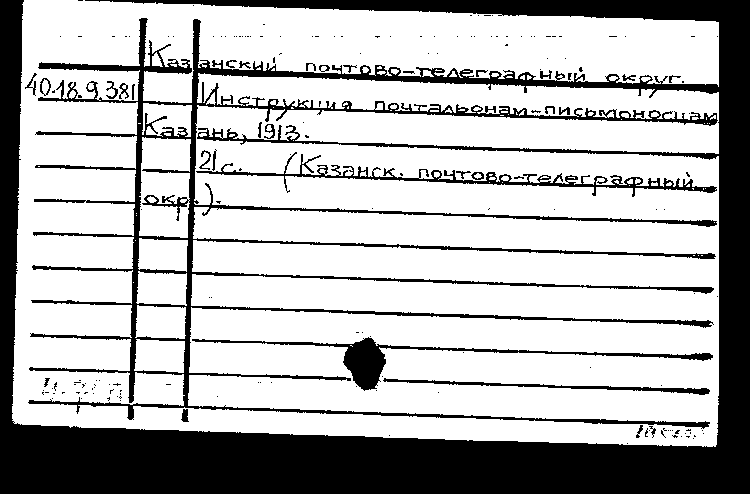 Казанский почтово-телеграфный округ.
40.18.9.381
Инструкция почтальонам-письмоносцам
Казань, 1913.
21с. (Казанск. почтово-телеграфный
окр.).